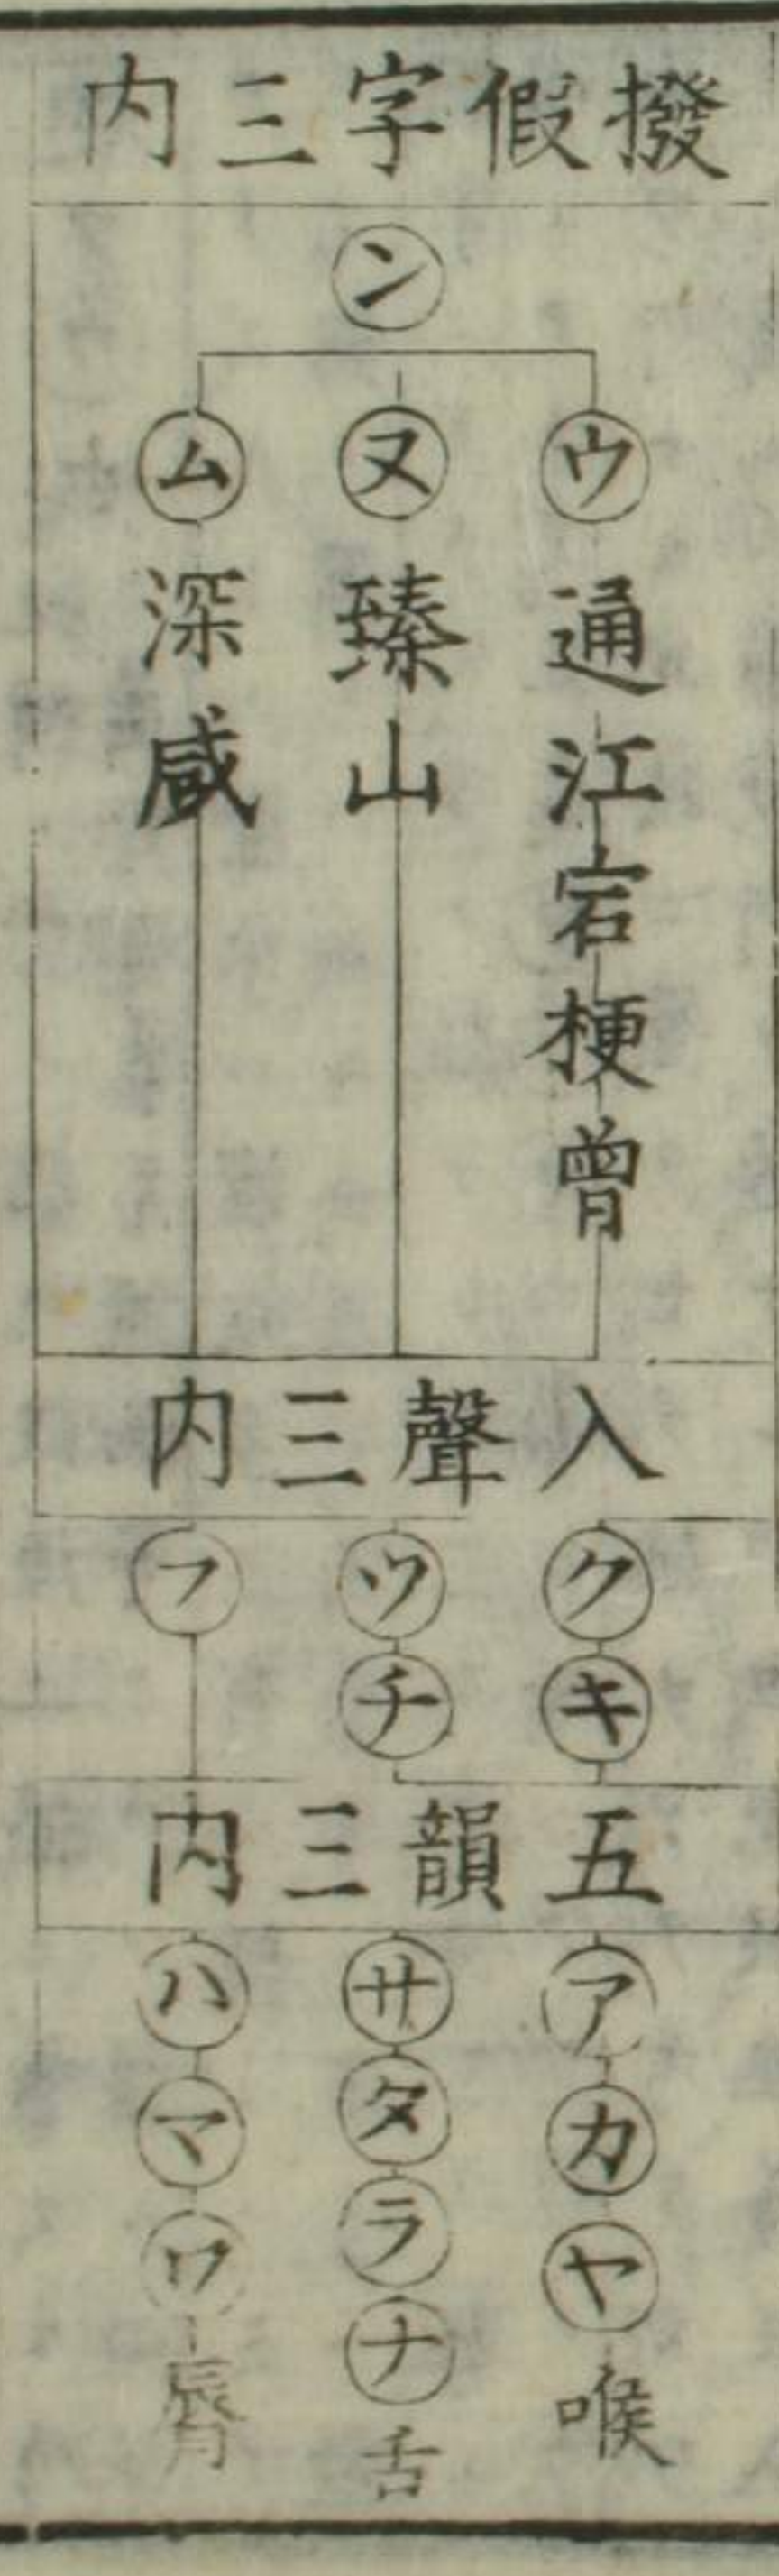 撥假字三内
ン
ウ通江宕梗曾
ヌ臻山
ム深咸
入聲三内
クキ
ツチ
フ
五韻三内
アカヤ喉
サタラナ舌
ハマワ脣